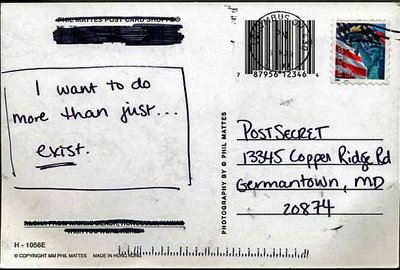 PHIL MATTES POST CARD SHOPPE
I want to do
more than just...
exist.
H - 1056E
© COPYRIGHT MM PHIL MATTES MADE IN HONG KONG
PHOTOGRAPHY BY © PHIL MATTES
PM
7 87956 12346 4
POSTSECRET
13345 Copper Ridge Rd
Germantown, MD
20874